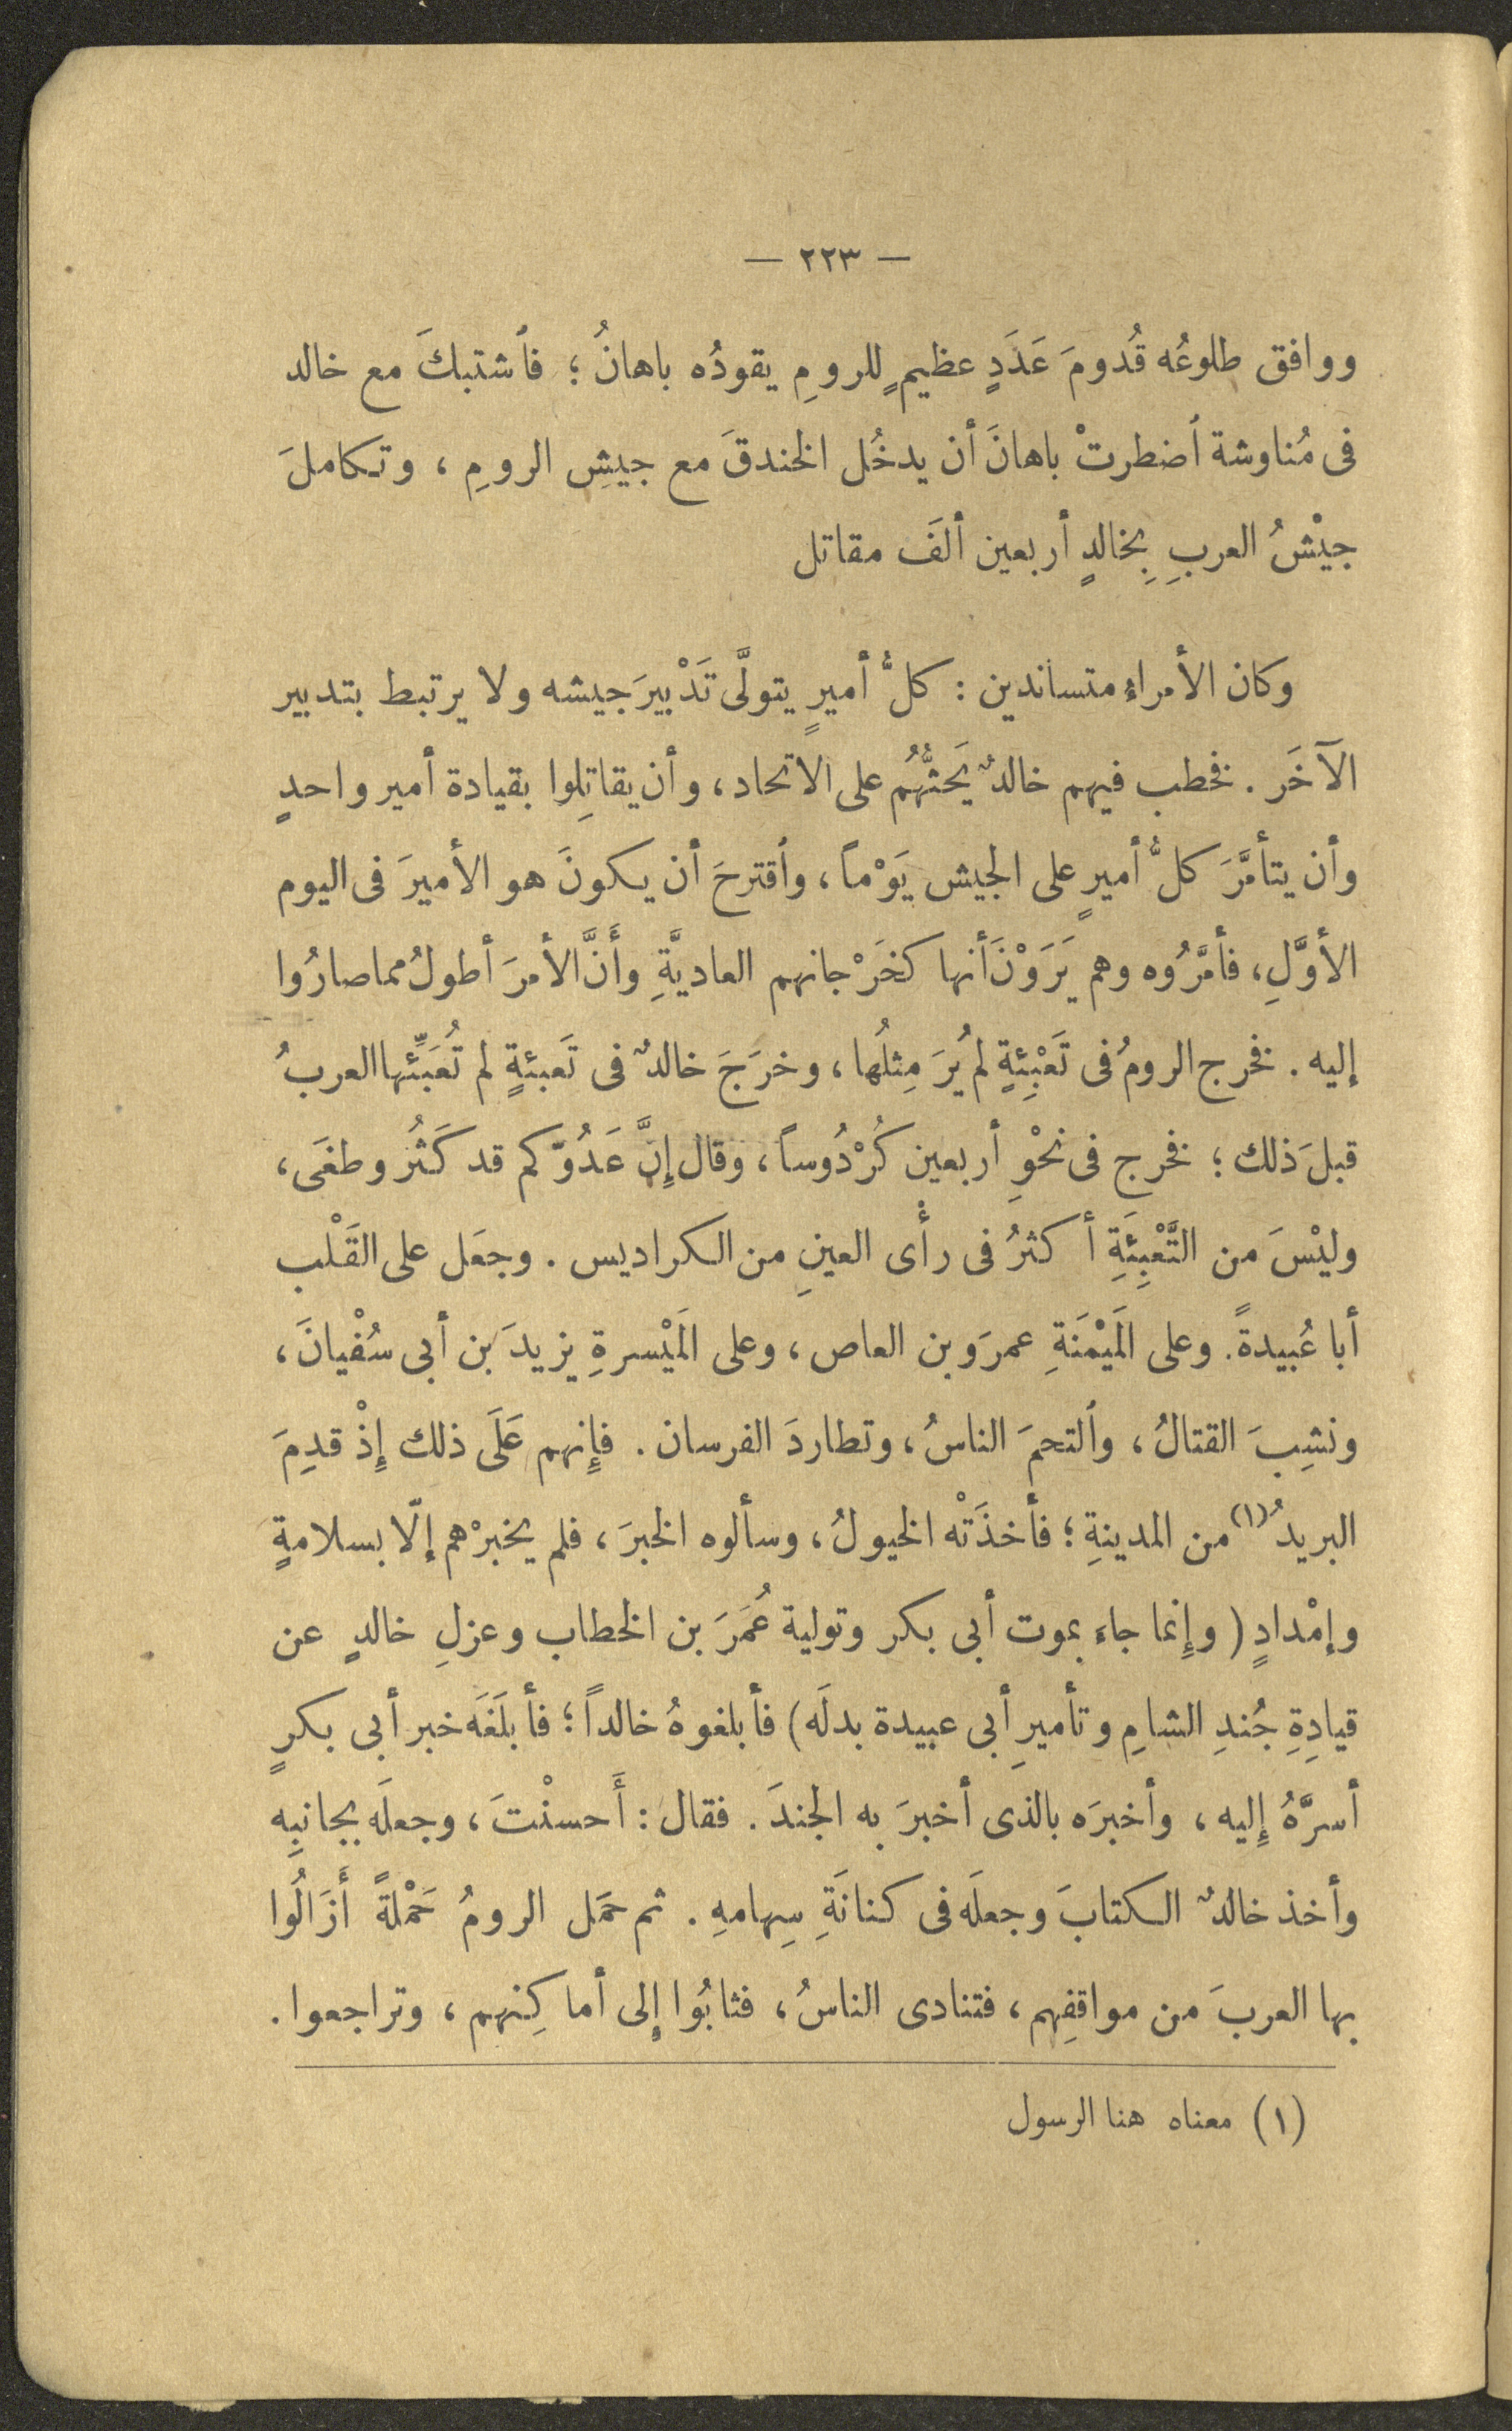 — ٢٢٣ —
ووافق طلوعُه قُدومَ عَدَدٍ عظيمٍ للرومِ يقودُه باهانُ ؛ فٱشتبكَ مع خالد
فى مُناوشة ٱضطرتْ باهانَ أن يدخُل الخندقَ مع جيشِ الرومِ ، وتكاملَ
جيْشُ العربِ بِخالدٍ أربعين ألفَ مقاتل
وكان الأمراء متساندين : كلُّ أميرٍ يتولَّى تَدْبيرَ جيشه ولا يرتبط بتدبير
الآخَر . فخطب فيهم خالدٌ يَحثُّهُم على الاتحاد ، وأن يقاتِلوا بقيادة أمير واحدٍ
وأن يتأمَّرَ كلُّ أميرٍ على الجيش يَوْماً ، وٱقترحَ أن يكونَ هو الأميرَ فى اليوم
الأوَّلِ ، فأمَّرُوه وهم يَرَوْنَ أنها كخَرْجانهم العاديَّةِ وأَنَّ الأمرَ أطولُ مما صارُوا
إليه . فخرج الرومُ فى تَعْبِئةٍ لم يُرَ مِثلُها ، وخرَجَ خالدٌ فى تَعبئةٍ لم تُعَبِّئها العربُ
قبلَ ذلك ؛ فخرج فى نحْوِ أربعين كُرْدُوساً ، وقال إِنَّ عَدُوّكم قد كَثُر وطغَى ،
وليْسَ من التَّعْبِئَةِ أكثرُ فى رأْى العينِ من الكراديس . وجعَل على القَلْب
أبا عُبيدةً . وعلى المَيْمَنَةِ عمرَو بن العاص ، وعلى المَيْسرةِ يزيدَ بن أبى سُفْيانَ ،
ونشِبَ القتالُ ، وٱلتحمَ الناسُ ، وتطاردَ الفرسان . فإِنهم عَلَى ذلك إِذْ قدِمَ
البريدُ (١) من المدينةِ ؛ فأخذَتْه الخيولُ ، وسألوه الخبرَ ، فلم يخبرْهم إلّا بسلامةٍ
وإمْدادٍ ( وإِنما جاء بموت أبى بكر وتولية عُمَرَ بن الخطاب وعزلِ خالدٍ عن
قيادِةِ جُندِ الشامِ وتأميرِ أبى عبيدة بدلَه ) فأبلغوهُ خالداً ؛ فأبلَغَه خبر أبى بكرٍ
أسرَّهُ إِليه ، وأخبرَه بالذى أخبرَ به الجندَ . فقال : أَحسنْتَ ، وجعلَه بجانبِه
وأخذ خالدٌ الكتابَ وجعلَه فى كنانَةِ سِهامهِ . ثم حمَل الرومُ حَمْلةً أَزَالُوا
بها العربَ من مواقفِهم ، فتنادى الناسُ ، فثابُوا إِلى أماكِنهم ، وتراجعوا .
(١) معناه هنا الرسول